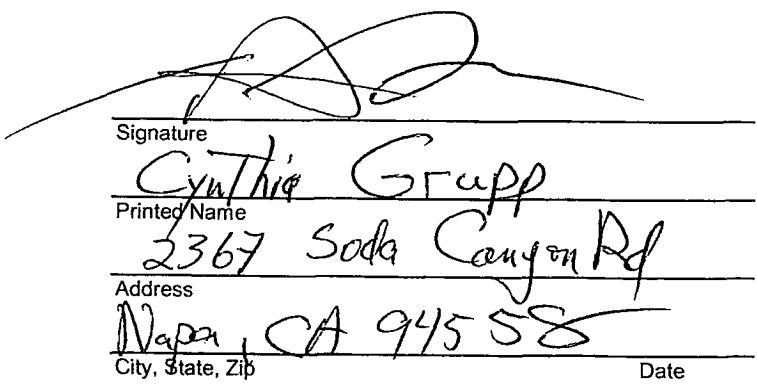 Signature
Cynthia Grupp
Printed Name
2367 Soda Canyon Rd
Address
Napa, CA 94558
City, State, Zip Date